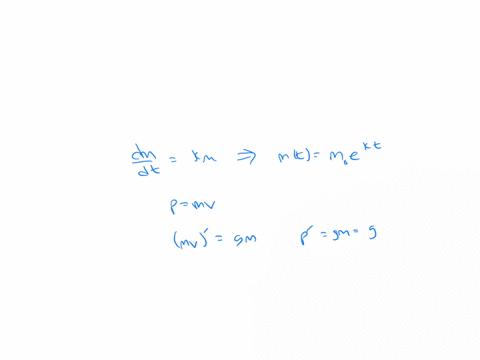 dm/dt = km ⇒ m(t) = m₀e^{kt}
p = mv
(mv)′ = gm p′ = gm = g